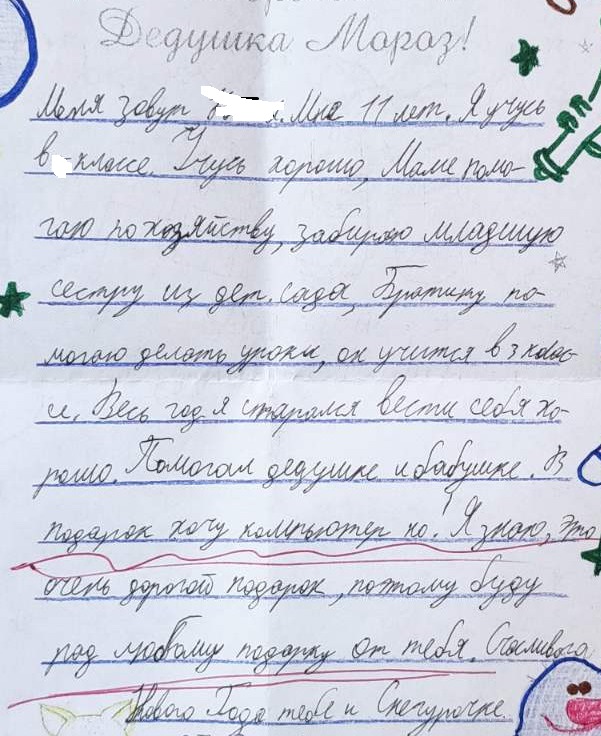 Дедушка Мороз!
Меня зовут. Мне 11 лет. Я учусь
в классе. Учусь хорошо, Маме помо-
гаю по хозяйству, забираю младшую
сестру из дет. сада, Братику по-
могаю делать уроки, он учится в 3 клас-
се. Весь год я старался вести себя хо-
рошо. Помогал дедушке и бабушке. В
подарок хочу компьютер но! Я знаю, это
очень дорогой подарок, поэтому буду
рад любому подарку от тебя. Счасливога
Нового Года тебе и Снегурочке.